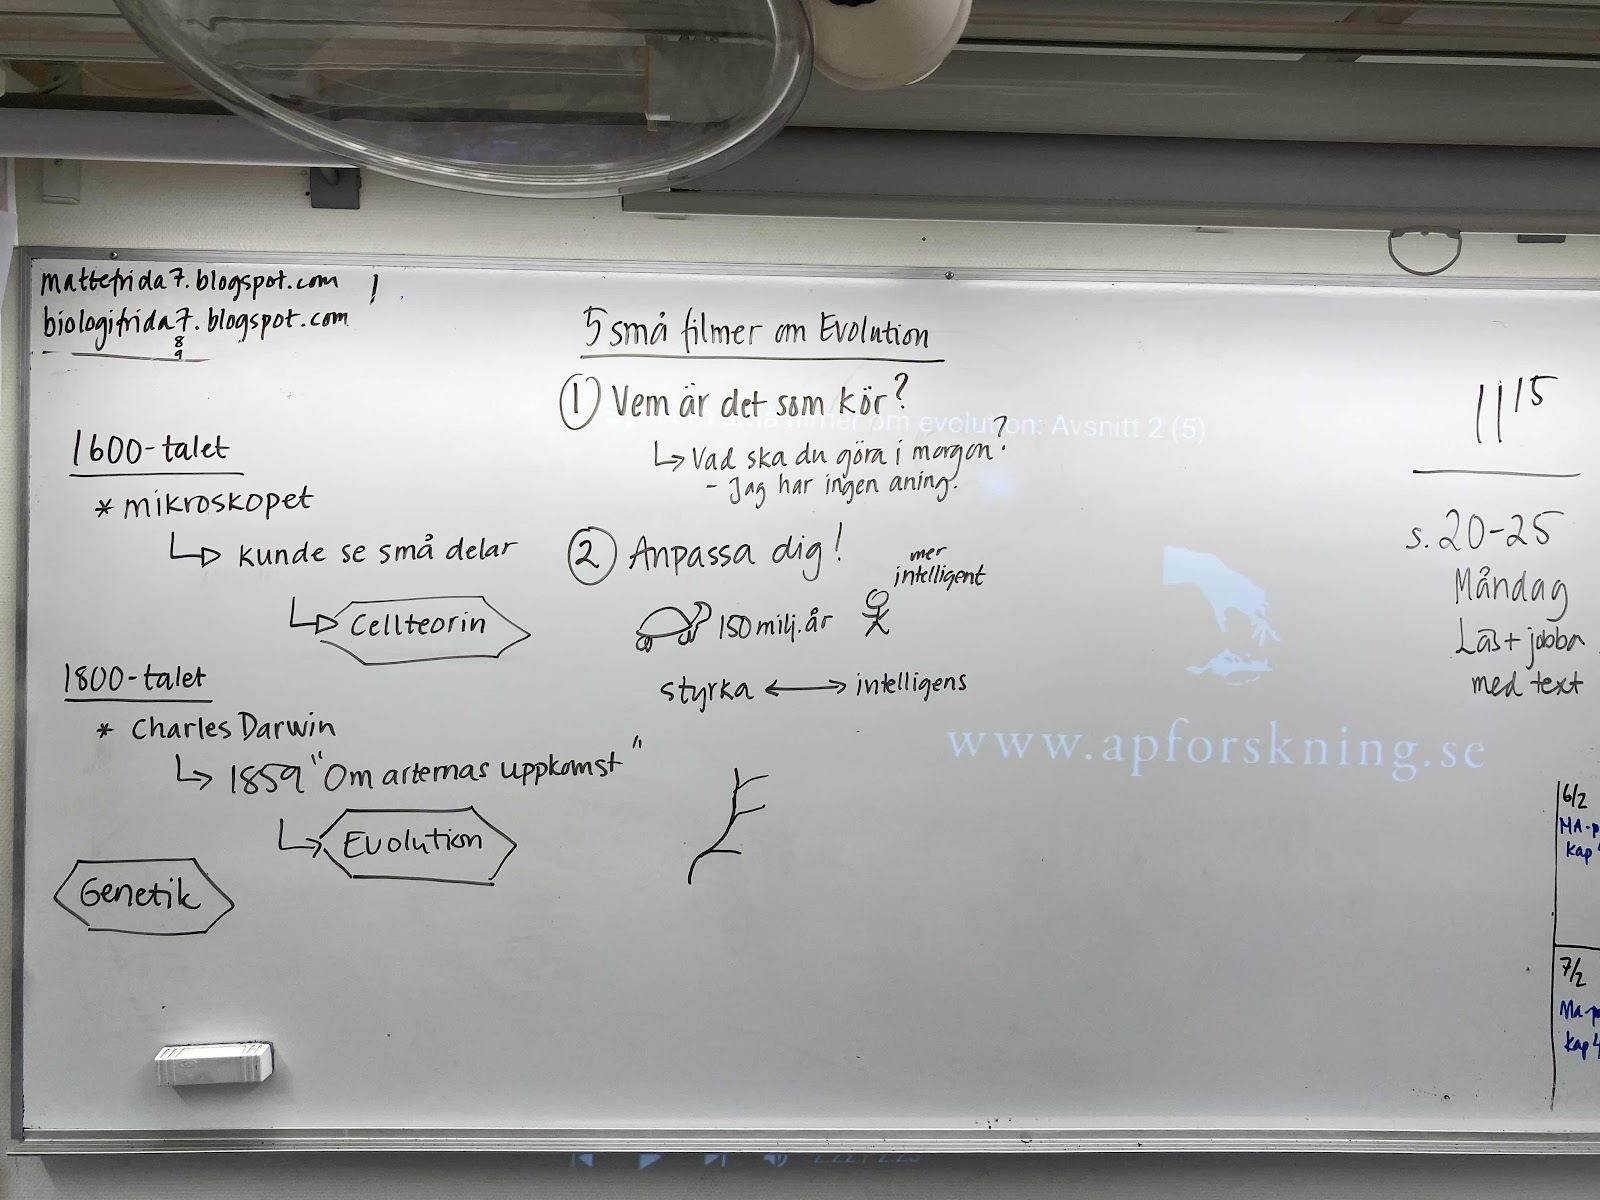 mattefrida7.blogspot.com !
biologifrida7.blogspot.com
8
9
1600-talet
* mikroskopet
kunde se små delar
Cellteorin
1800-talet
* Charles Darwin
1859 "Om arternas uppkomst"
Evolution
Genetik
5 små filmer om Evolution
1 Vem är det som kör?
Vad ska du göra i morgon?
- Jag har ingen aning.
2 Anpassa dig!
mer
intelligent
150 milj. år
styrka intelligens
om evolution: Avsnitt 2 (5)
www.apforskning.se
11 15
s. 20-25
Måndag
Läs + jobba
med text
6/2
MA-p
Kap
7/2
Ma-p
Kap 4